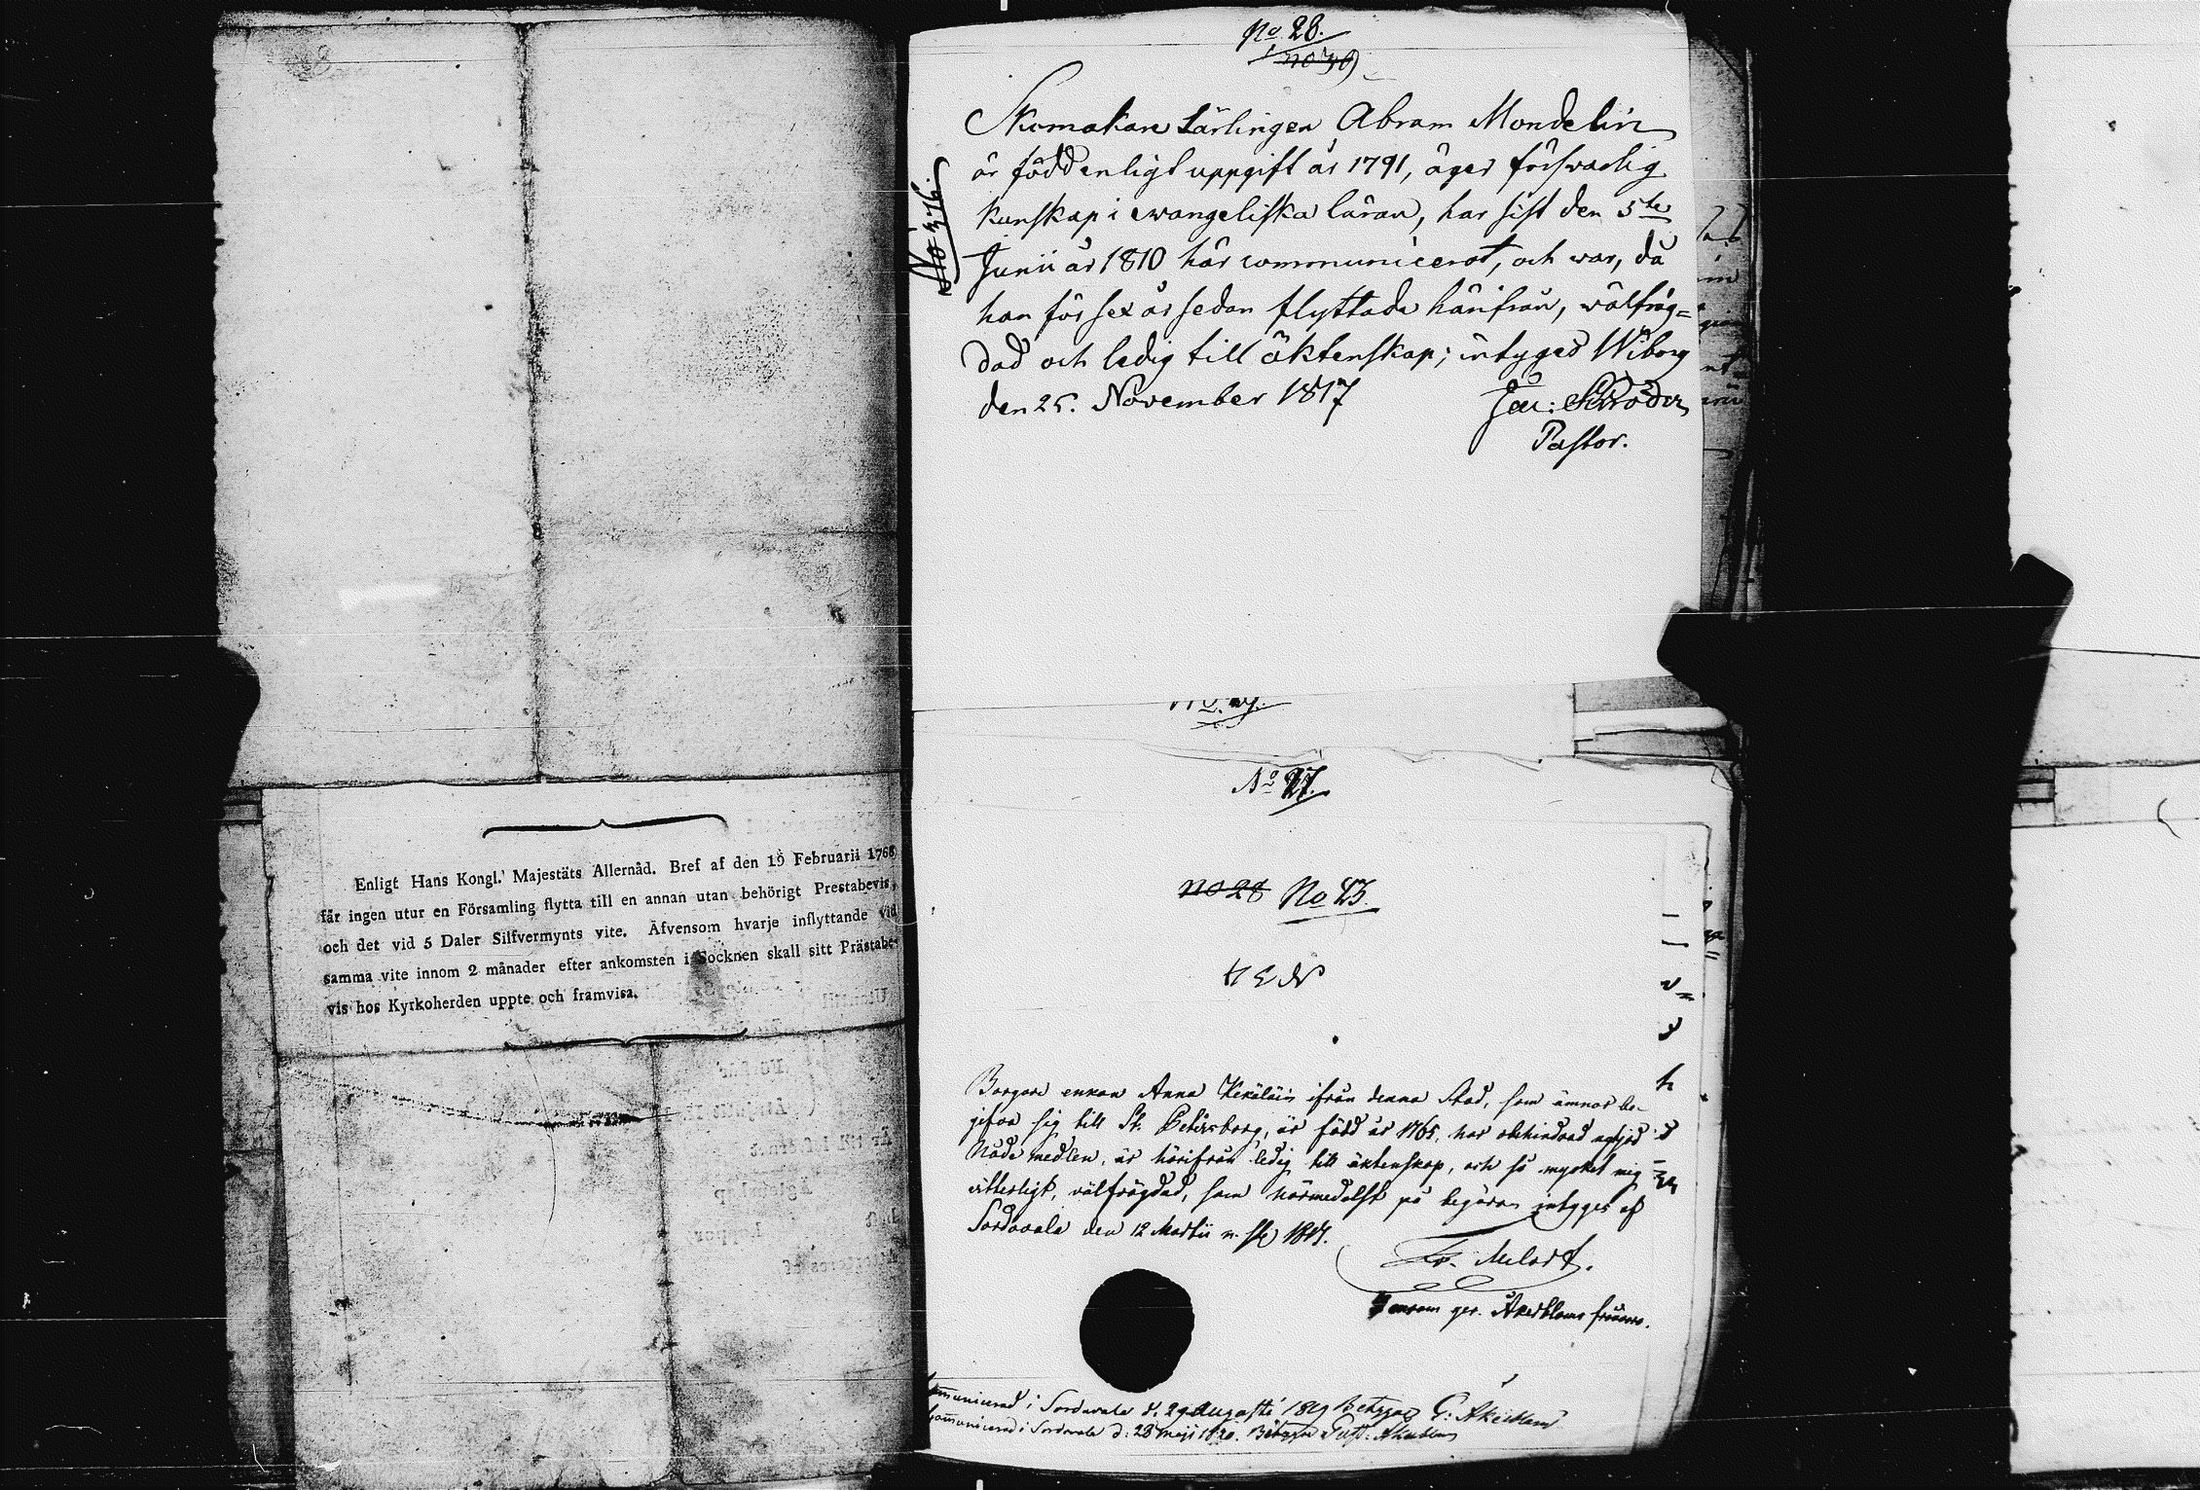 Enligt Hans Kongl. Majestäts Allernåd. Bref af den 19 Februarii 1768
får ingen utur en Församling flytta till en annan utan behörigt Prestabevis,
och det vid 5 Daler Silfvermynts vite. Äfvensom hvarje inflyttande vid
samma vite innom 2 månader efter ankomsten i Socknen skall sitt Prästabe-
vis hos Kyrkoherden uppte och framvisa.
No 28.
No 376.
Skomakare Lärlingen Abram Mondelin
är född enligt uppgift år 1791, äger försvarlig
kunskap i evangeliska läran, har sist den 5te
Junii år 1810 här communicerat, och war, då
han för sex år sedan flyttade härifrån, wälfräg=
dad och ledig till äktenskap; intygas Wiborg
den 25. November 1817
Schröder
Pastor.
No 27.
no 28 No 43.
Borgare enkan Anna ifrån denna Stad, som ämnar be-
gifva sig till St. Petersborg, är född år 1765, har obehindrad
Nådemedlen, är härifrån ledig till äktenskap, och så mycket mig
vitterligt, välfrägdad, som härmedelst på begäran intygas af
Sordavala den 12 Martii
Communicerad i Sordavala d. 29 Augusti 1819 Betygar G: Åkerblom
Communicerad i Sordavala d: 28 Maji 1820. Betygar Gust. Åkerblom